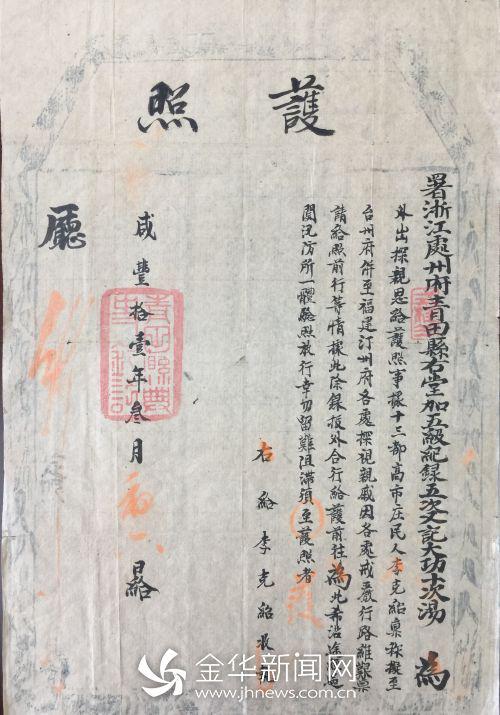 護照
署浙江處州府青田縣右堂加五級紀錄五次又記大功十次湯 為
外出探親思給護照事據十三都高市庄民人李克紹稟稱擬至
台州府併至福建汀州府各處探視親戚因各處戒嚴行路維艱稟
請給照前行等情據此除錄報外合行給護前往為此希沿途
關汛防所一體驗照放行幸勿留難阻滯須至護照者
右給李克紹收
咸豐拾壹年叁月 日給
廳
金华新闻网
www.jhnews.com.cn